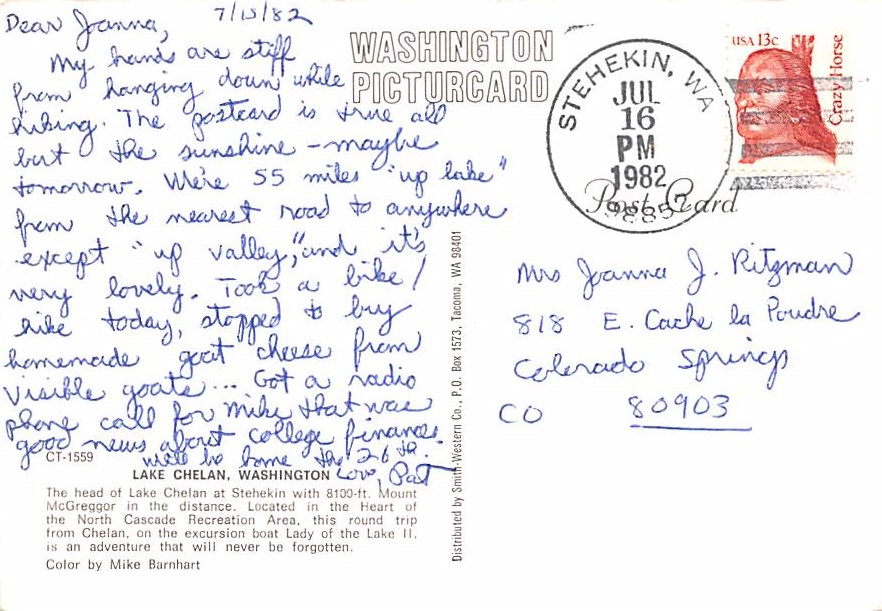 7/15/82
Dear Joanna,
My hands are stiff
from hanging down while
hiking. The postcard is true all
but the sunshine – maybe
tomorrow. We're 55 miles "up lake"
from the nearest road to anywhere
except "up valley," and it's
very lovely. Took a bike/
hike today, stopped to buy
homemade goat cheese from
visible goats... Got a radio
phone call for Mike that was
good news about college finances.
We'll be home the 26th.
Love, Pat
WASHINGTON
PICTURCARD
STEHEKIN, WA
JUL
16
PM
1982
98852
USA 13c
Crazy Horse
Post Card
Mrs Joanna J. Ritzman
818 E. Cache la Poudre
Colorado Springs
CO 80903
Distributed by Smith-Western Co., P.O. Box 1573, Tacoma, WA 98401
CT-1559
LAKE CHELAN, WASHINGTON
The head of Lake Chelan at Stehekin with 8100-ft. Mount
McGreggor in the distance. Located in the Heart of
the North Cascade Recreation Area, this round trip
from Chelan, on the excursion boat Lady of the Lake II,
is an adventure that will never be forgotten.
Color by Mike Barnhart